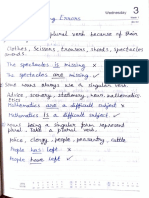 ng Errors
Mathematics 3
plural verb because of their
clothes, scissors, trousers, shorts, spectacles
The spectacles is missing ×
The spectacles are missing ✓
take a singular verb
advice, scenery, stationery, news, mathematics
Mathematics are a difficult subject ×
Mathematics is a difficult subject ✓
Nouns being a singular form represent
plural. Take a plural verb.
police, clergy, people, peasantry, cattle
People has left ×
People have left ✓